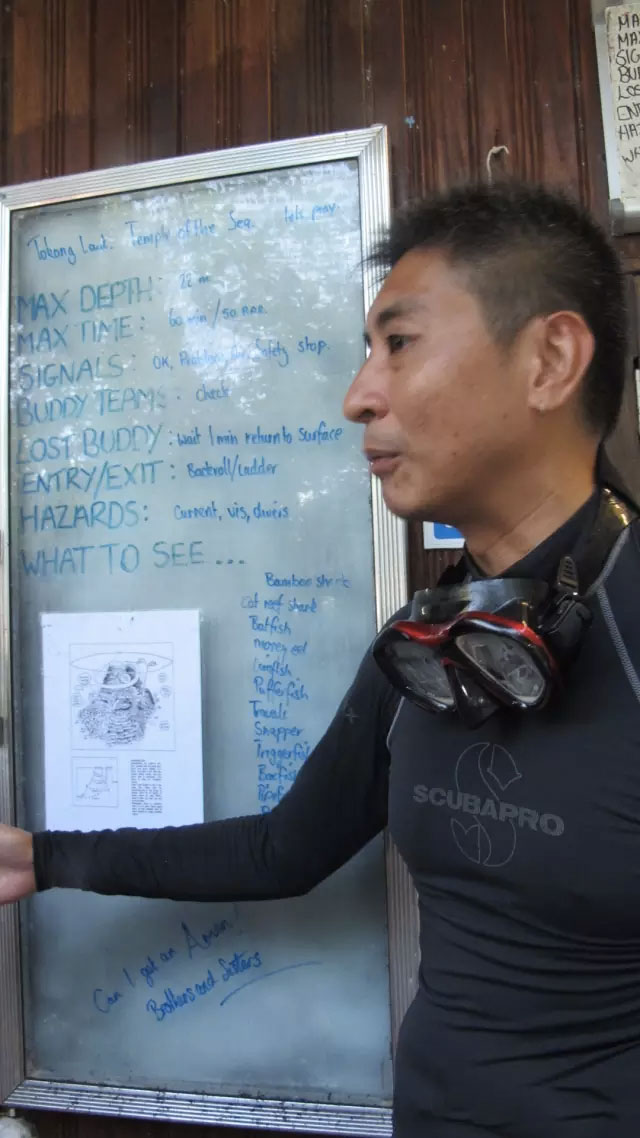 Tokong Laut: Temple of the Sea. let's pray.
MAX DEPTH: 22 m
MAX TIME: 60 min / 50 BAR.
SIGNALS: OK, Problem, Air, Safety stop.
BUDDY TEAMS: Check
LOST BUDDY: wait 1 min return to surface
ENTRY/EXIT: Backroll/Ladder
HAZARDS: Current, vis, divers
WHAT TO SEE...
Bamboo shark
Cat reef shark
Batfish
moray eel
Lionfish
Pufferfish
Travals
Snapper
Triggerfis
Boxfis
Can I get an Amen!
Brothers and Sisters
SCUBAPRO
MA
MAX
SIG
BU
LOS
EN
HA